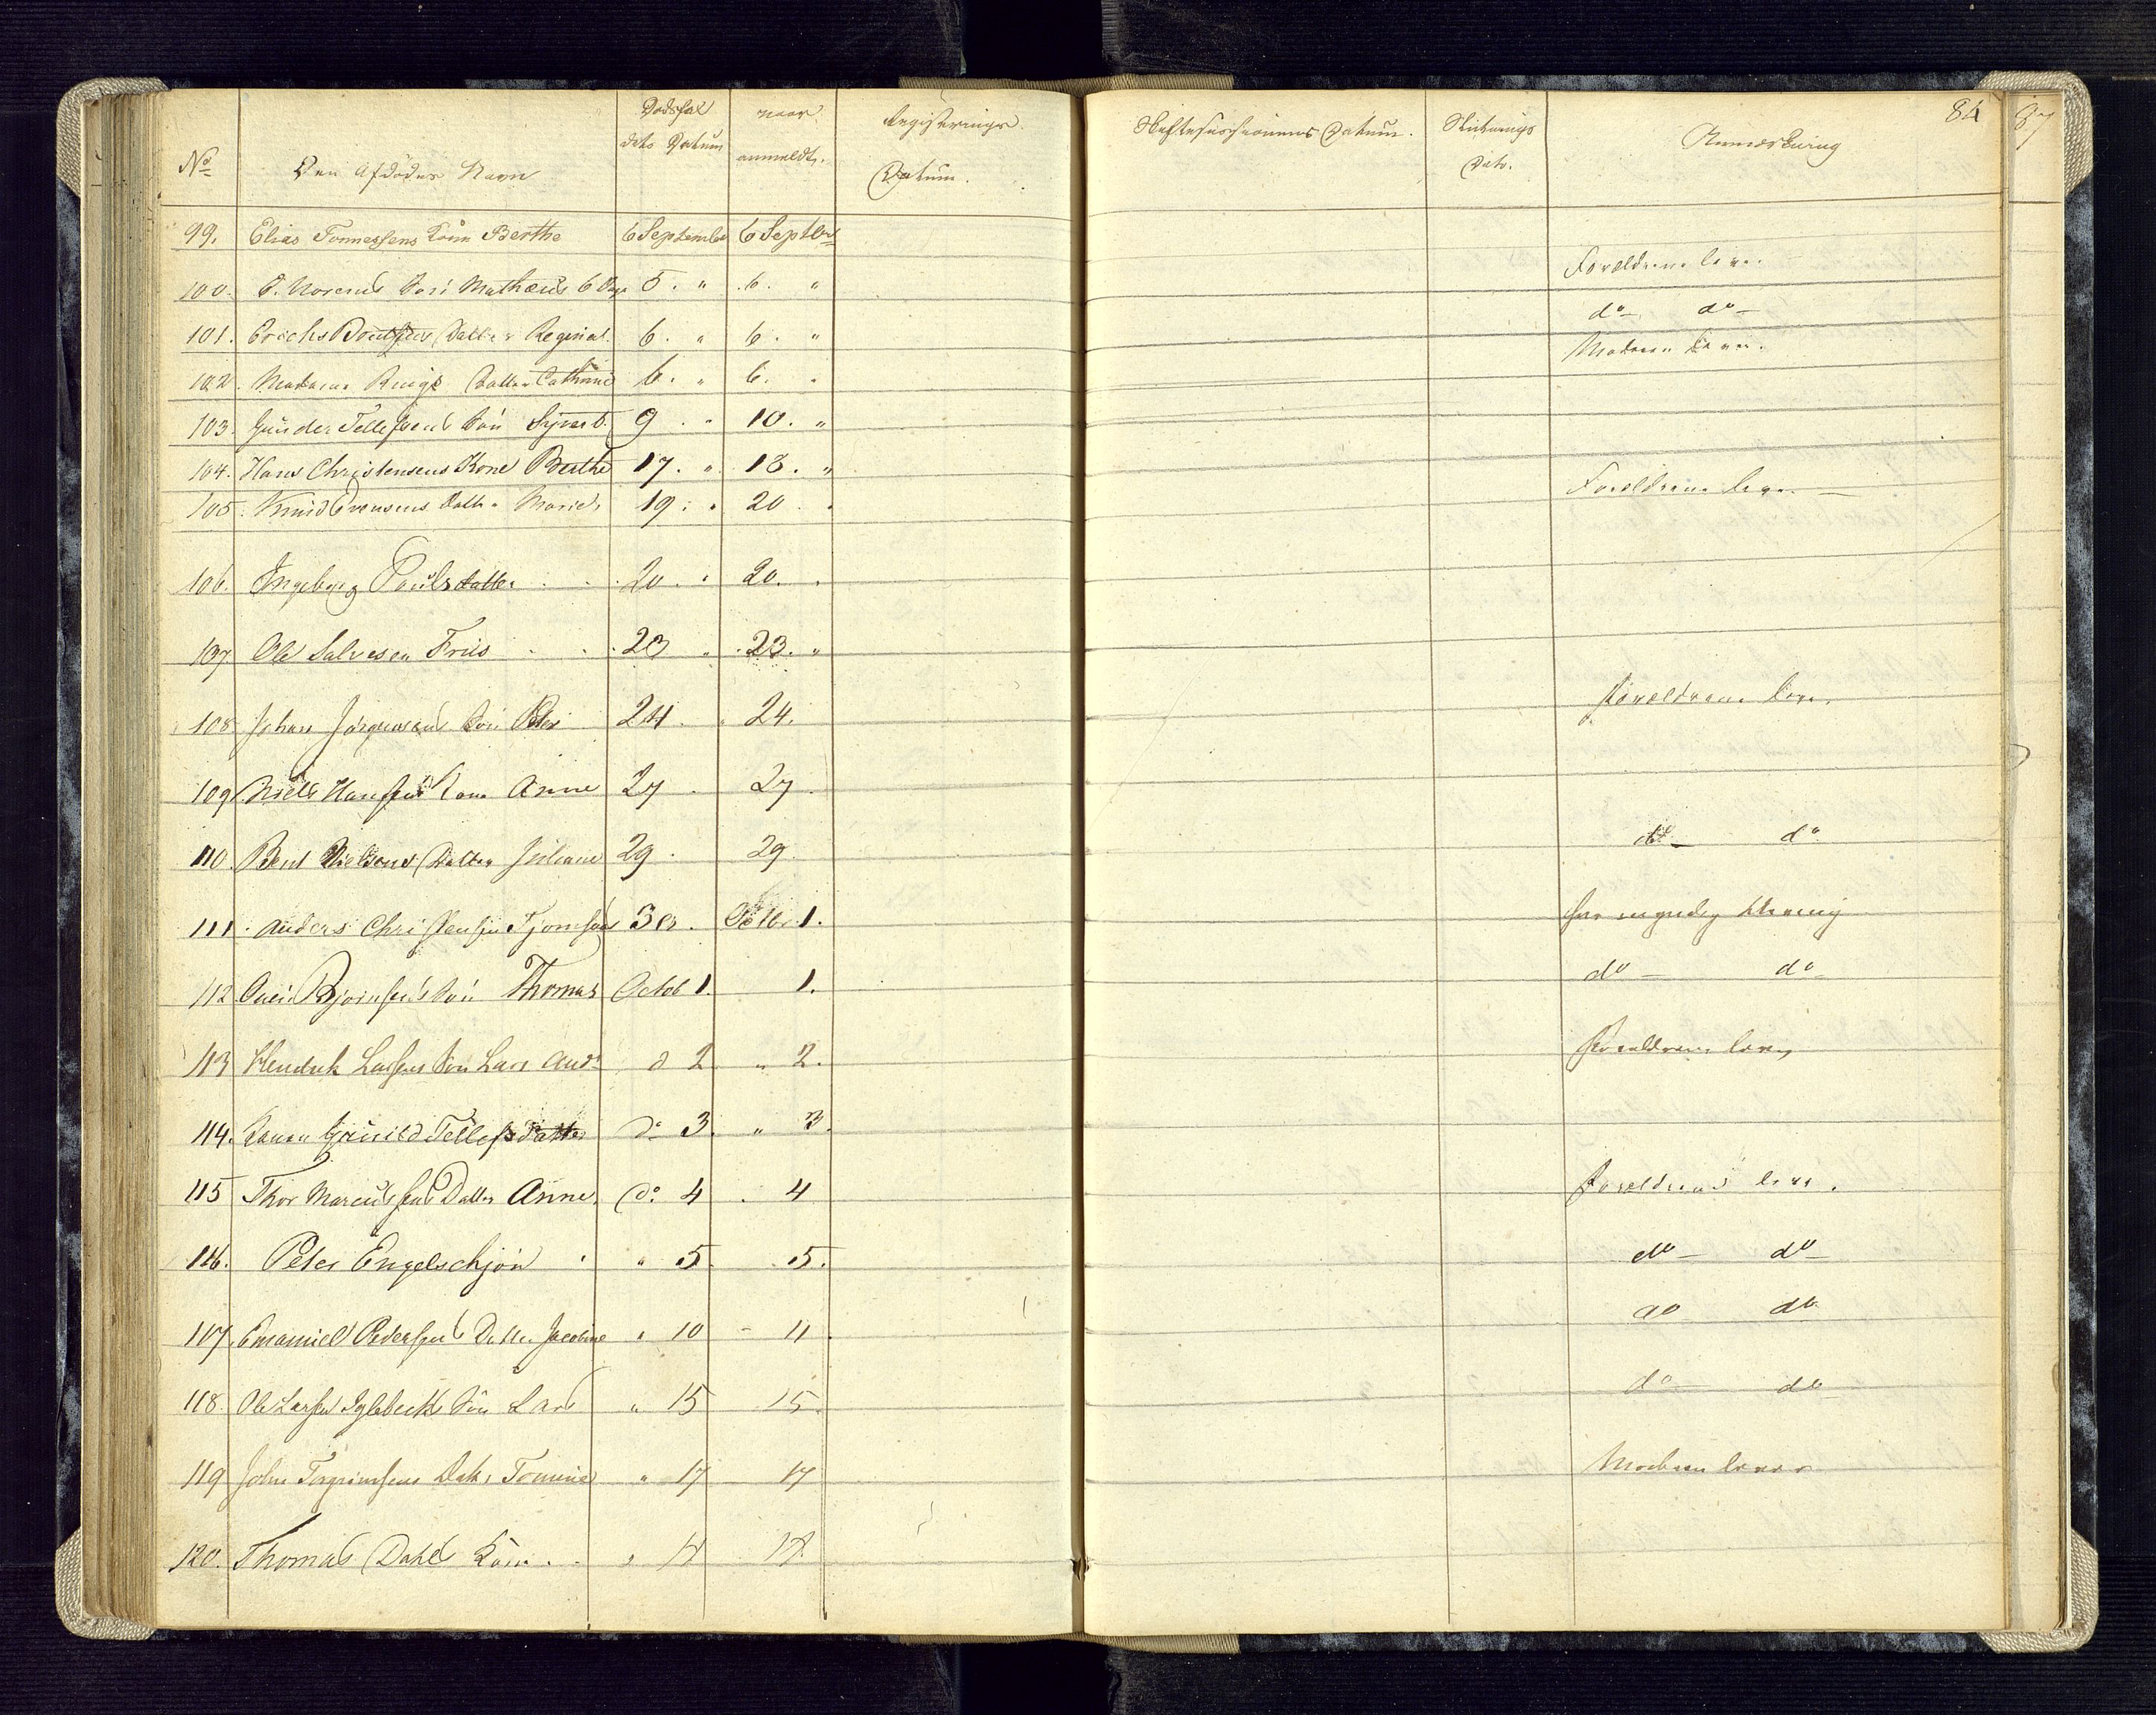 84
87
No
Den Afdødes Navn
Dødsfal
dets Datum
naar
anmeldt.
Registerings
Datum.
Skiftesessionens Datum.
Slutnings
Dato.
Anmærkning
99. Elias Tonnessens Kone Berthe 6 September 6 Septbr
100. Søn Mathæus 6 Dage 5. " 6. " Forældrene lever
101. Erichs Datter Regine 6. " 6. " do do
102. Madame Rings Datter Cathrine 6. " 6. " Moderen lever.
103. Gunder Tellefsens Søn Syvert. 9 " 10. "
104. Hans Christensens Kone Berthe 17. " 18. "
105. Knud Evensens Datter Marie, 19. " 20 " Forældrene lever
106. Ingeborg Poulsdatter 20. " 20. "
107 Ole Salvesen Friis 23 " 23. "
108 Johan Jörgensens Søn Peter 24. 24. Forældrene lever,
109 Niels Hansens Kone Anne 27 27.
110. Bent Nielsens Datter Juliane 29. 29. do do
111. Anders Christensen 30. Octbr 1.
112 Bjørnsens Søn Thomas Octob 1. 1. do do
113 Hendrik Larsens Søn Lars And: d 2 " 2. Forældrene lever
114. Konen Gunild Tellefsdatter do 3. " 3.
115 Thor Marcussens Datter Anne, do 4 4 Forældrene lever.
116. Peter Engelschjøn " 5. 5. do do
117. Emanuel Pedersens Datter Jacobine " 10 11. do do
118. Ole Larsen Søn Lars " 15 15. do do
119 John Datr Tomine " 17 17 Moderen lever
120. Thomas Dahls Kone